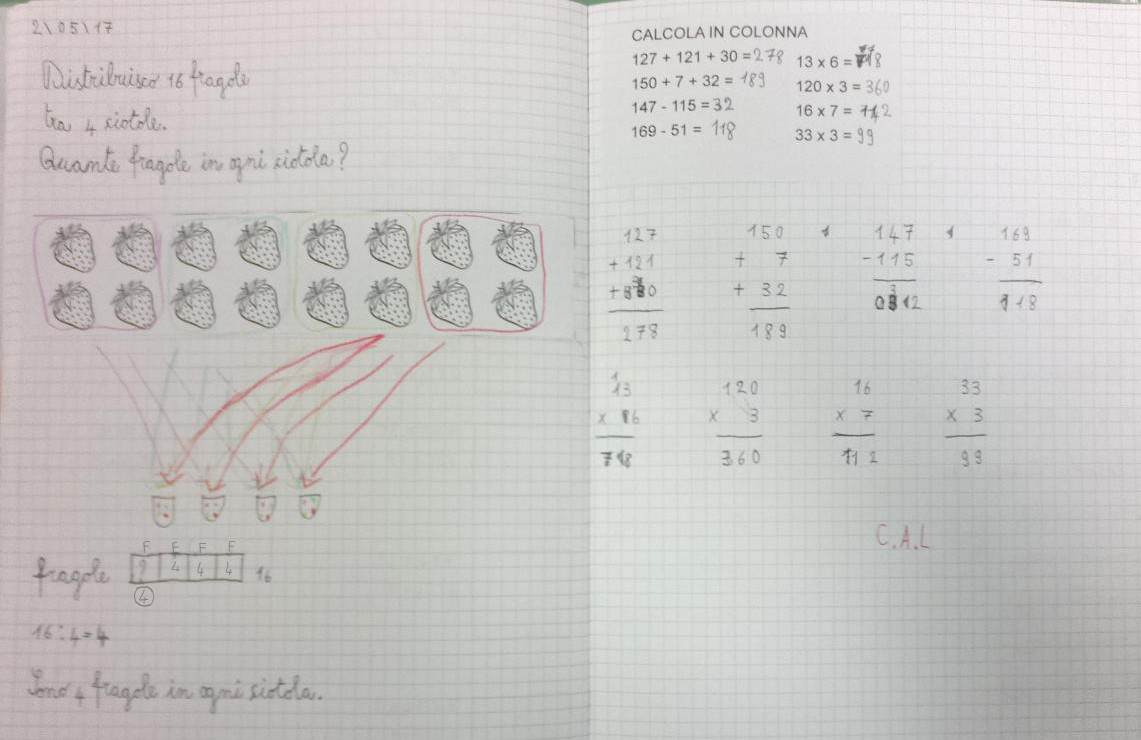 2\05\17
Distribuisco 16 fragole
tra 4 ciotole.
Quante fragole in ogni ciotola?
F F F F
fragole ? 4 4 4 16
4
16:4=4
Sono 4 fragole in ogni ciotola.
CALCOLA IN COLONNA
127 + 121 + 30 = 278
150 + 7 + 32 = 189
147 - 115 = 32
169 - 51 = 118
13 x 6 = 78
120 x 3 = 360
16 x 7 = 112
33 x 3 = 99
127 150 147 169
+ 121 + 7 - 115 - 51
+ 30 + 32
278 189 032 118
1
13 120 16 33
x 6 x 3 x 7 x 3
78 360 112 99
C.A.L